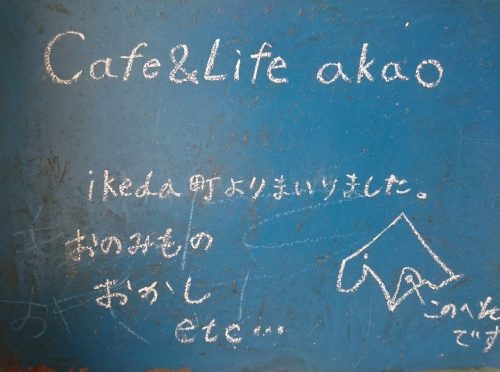 Cafe&Life akao
ikeda町よりまいりました。
おのみもの
おかし
etc…
このへん
です